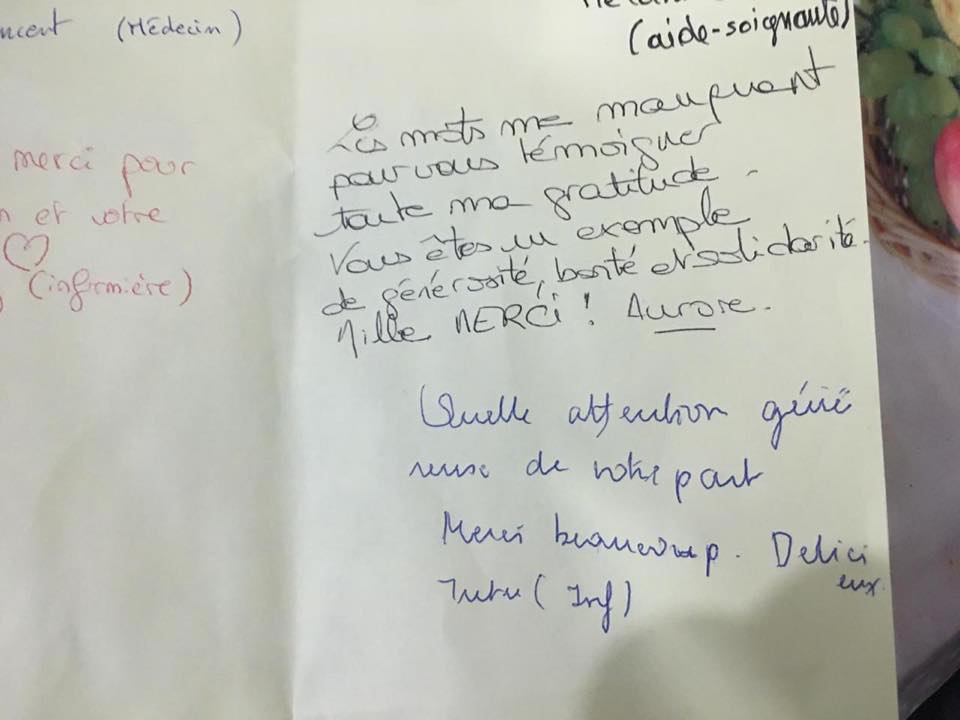 (Médecin)
merci pour
et votre
(infirmière)
(aide-soignante)
Les mots me manquent
pour vous témoigner
toute ma gratitude.
Vous êtes un exemple
de générosité, bonté et solidarité.
Mille MERCI ! Aurore.
Quelle attention géné
reuse de votre part
Merci beaucoup. Delici
eux.
Tutu (Inf)